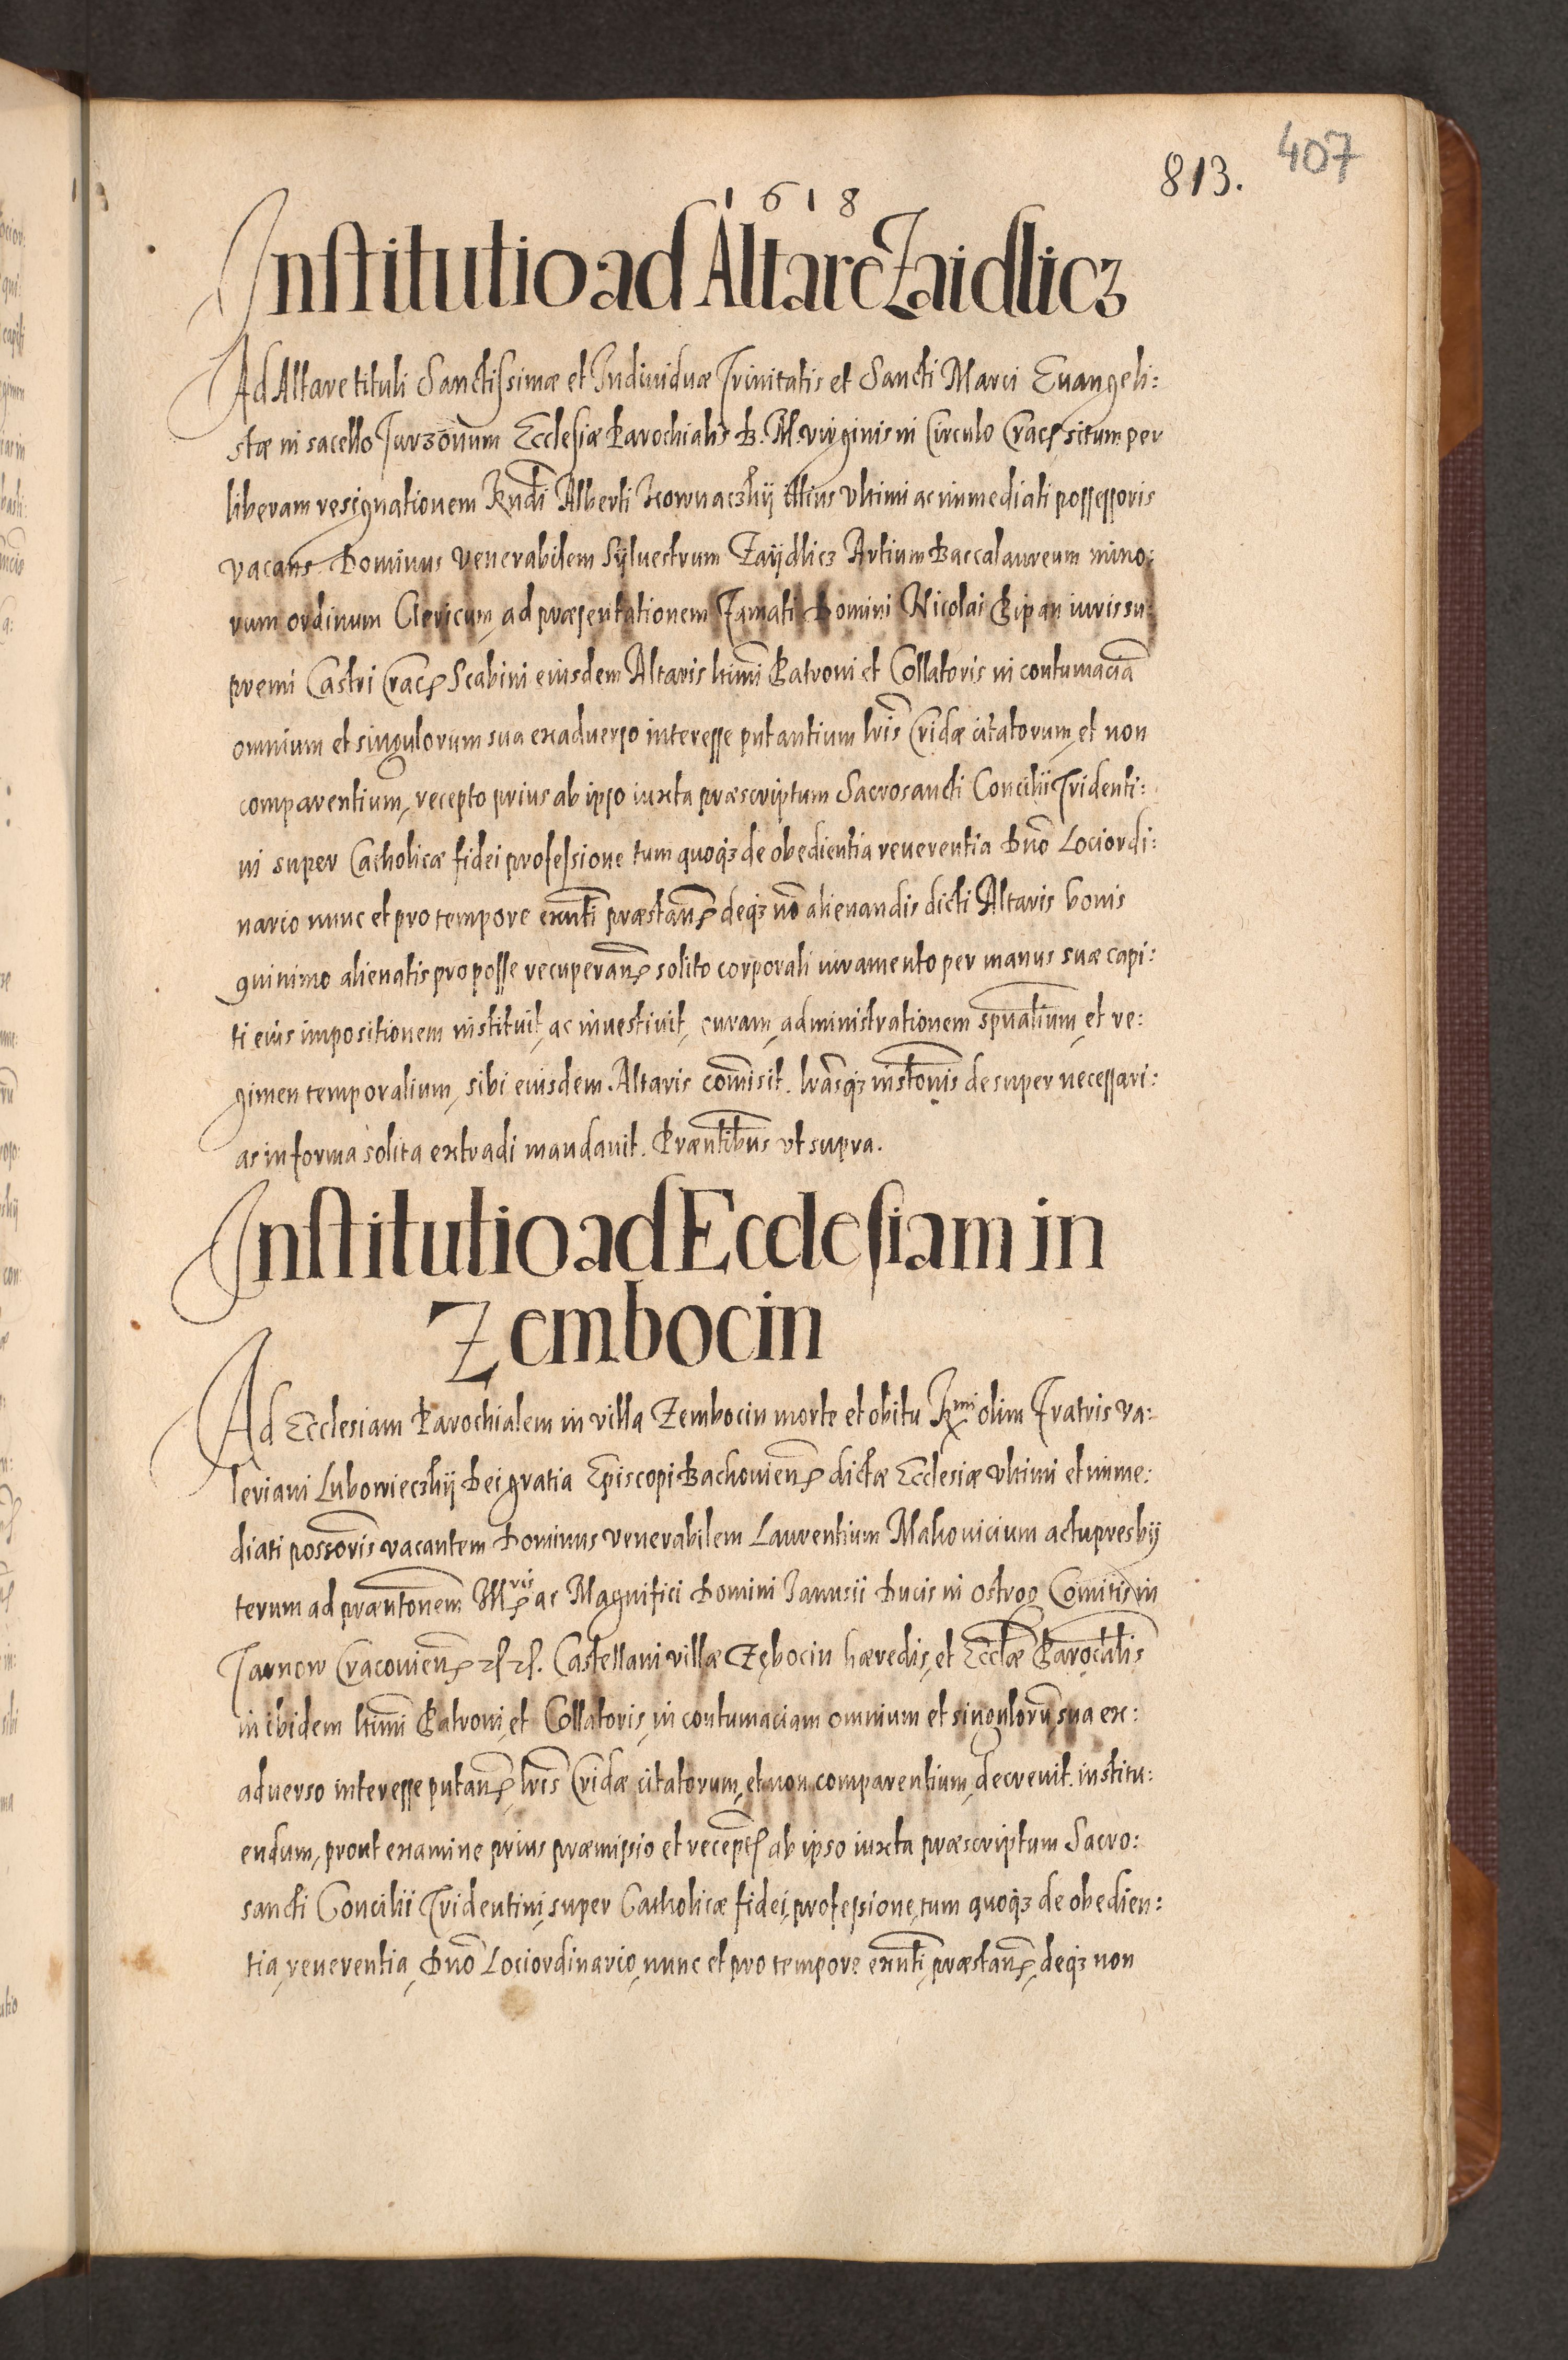 407
813.
1618
Institutio ad Altare Zaidlicz
Ad Altare tituli Sanctissimæ et Individuæ Trinitatis et Sancti Marci Euangeli:
stæ in sacello Turzonum Ecclesiæ Parochialis B. M. virginis in Circulo Crac. situm per
liberam resignationem Rndi Alberti illius vltimi ac immediati possessoris
vacans Dominus venerabilem Syluestrum Zaydlicz Artium Baccalaureum mino:
rum ordinum Clericum, ad præsentationem Famati Domini Nicolai Pipan iuris su:
premi Castri Crac. Scabini eiusdem Altaris ltimi Patroni et Collatoris in contumaciã
omnium et singulorum sua exaduerso interesse putantium lris Cridæ citatorum, et non
comparentium, recepto prius ab ipso iuxta præscriptum Sacrosancti Concilii Tridenti:
ni super Catholicæ fidei professione tum quoq3 de obedientia reuerentia Dno Lociordi:
nario nunc et pro tempore exnti præstan. deq3 nõ alienandis dicti Altaris bonis
quinimo alienatis pro posse recuperan. solito corporali iuramento per manus suæ capi:
ti eius impositionem instituit, ac inuestiuit, curam, administrationem spualium, et re:
gimen temporalium, sibi eiusdem Altaris comisit. lrasq3 instonis desuper necessari:
as in forma solita extradi mandauit. Præntibus vt supra.
Institutio ad Ecclesiam in
Zembocin
Ad Ecclesiam Parochialem in villa Zembocin morte et obitu Rmi olim Fratris Va:
leriani Lubowieczky Dei gratia Episcopi Bachouien. dictæ Ecclesiæ vltimi et imme:
diati possoris vacantem Dominus venerabilem Laurentium Makouicium actu presby
terum ad præntonem Illris ac Magnifici Domini Ianusii Ducis in Ostrog Comitis in
Tarnow Cracouien. Castellani villæ Zębocin hæredis, et Ecclæ Parochlis
in ibidem ltimi Patroni, et Collatoris, in contumaciam omnium et singulorũ sua ex:
aduerso interesse putan. lris Cridæ citatorum, et non comparentium, decreuit institu:
endum, prout examine prius præmisso et recept. ab ipso iuxta præscriptum Sacro:
sancti Concilii Tridentini, super Catholicæ fidei, professione, tum quoq3 de obedien:
tia, reuerentia, Dno Lociordinario, nunc et pro tempore exnti, præstan., deq3 non